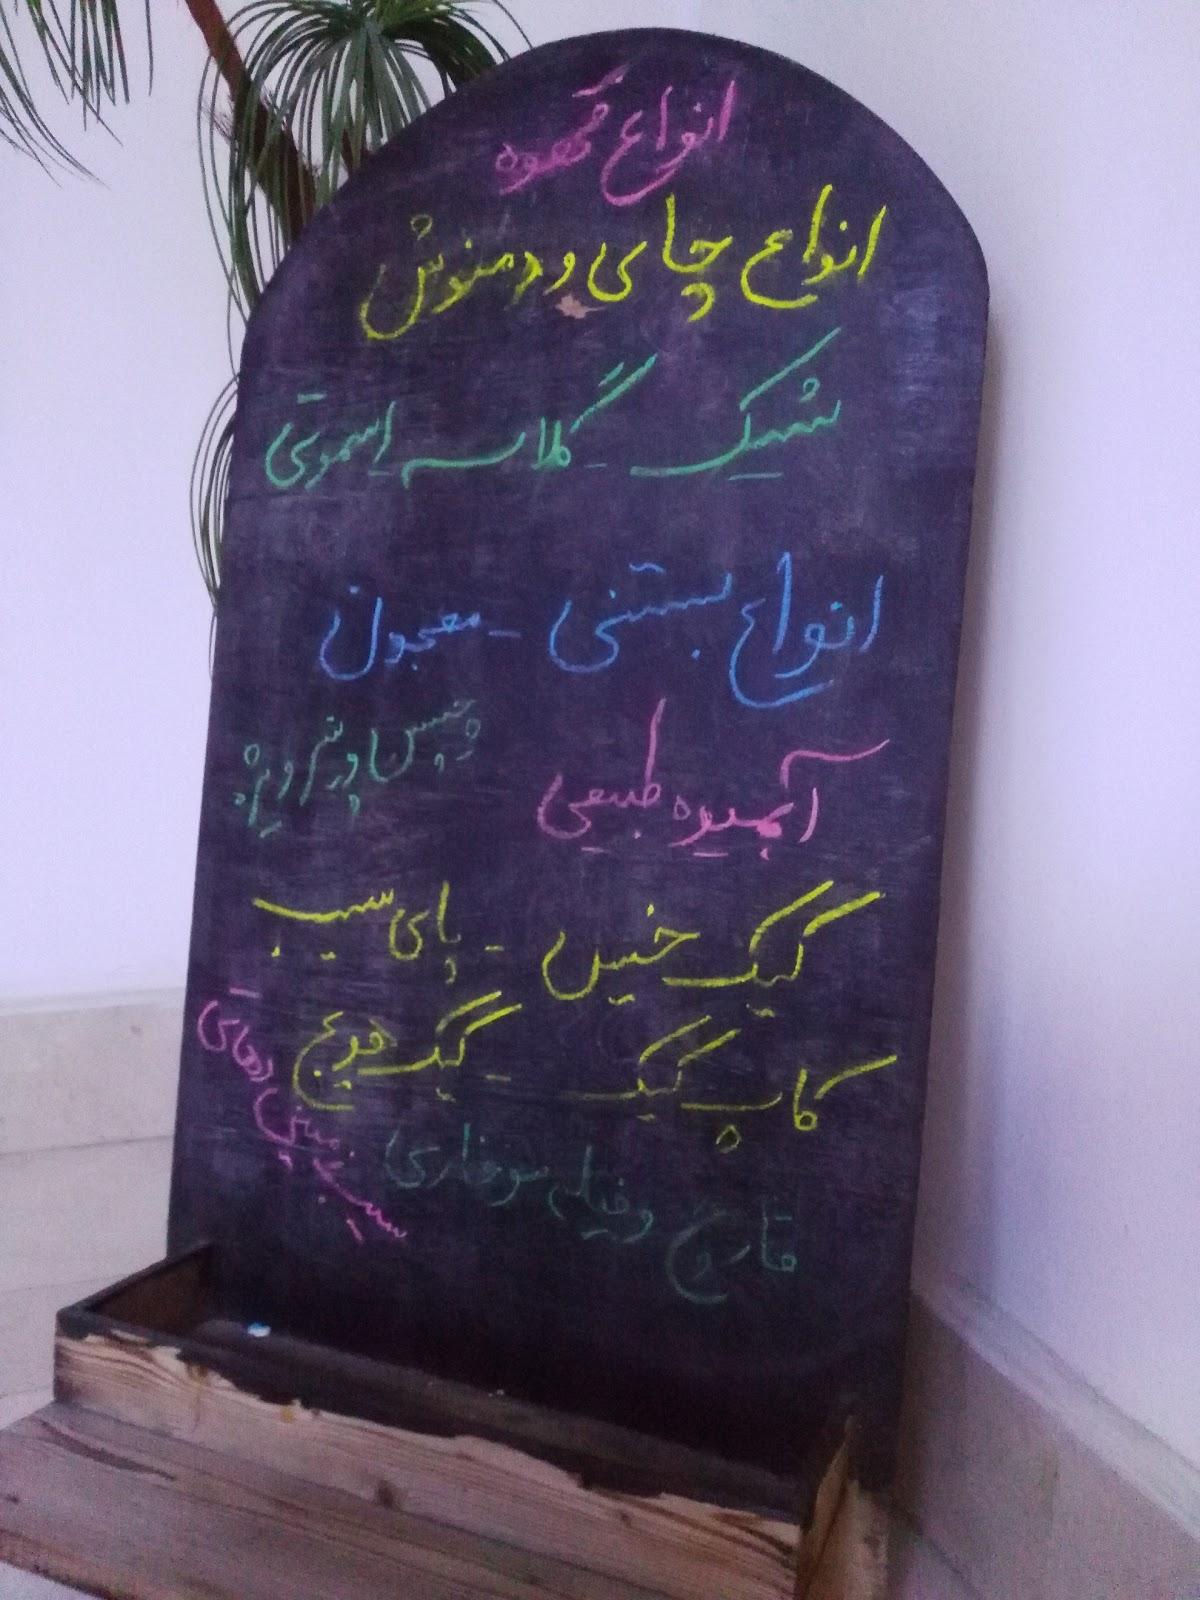 انواع قهوه
انواع چای و دمنوش
شیک - گلاسه - اسموتی
انواع بستنی - معجون
آبمیوه طبیعی
چیپس و پنیر ویژه
کیک خیس - پای سیب
کاپ کیک - کیک هویج
قارچ و سوخاری
سیب زمینی